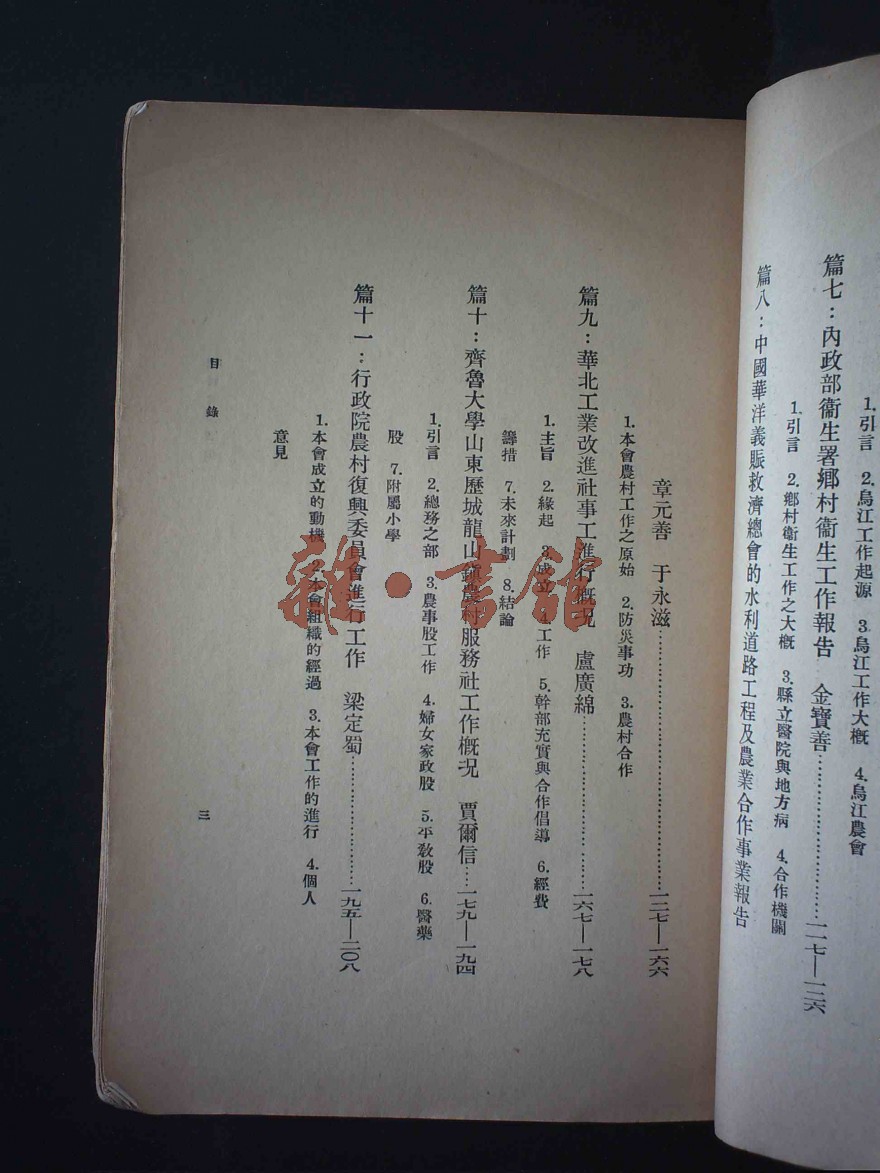 1.引言 2.烏江工作起源 3.烏江工作大概 4.烏江農會
篇七：內政部衞生署鄉村衞生工作報告 金寶善……一一七—一二六
1.引言 2.鄉村衞生工作之大概 3.縣立醫院與地方病 4.合作機關
篇八：中國華洋義賑救濟總會的水利道路工程及農業合作事業報告
章元善 于永滋……一二七—一六六
1.本會農村工作之原始 2.防災事功 3.農村合作
篇九：華北工業改進社事工進行概況 盧廣綿……一六七—一七八
1.主旨 2.緣起 3.成立 4.工作 5.幹部充實與合作倡導 6.經費
籌措 7.未來計劃 8.結論
篇十：齊魯大學山東歷城龍山鎮農村服務社工作概况 賈爾信……一七九—一九四
1.引言 2.總務之部 3.農事股工作 4.婦女家政股 5.平敎股 6.醫藥
股 7.附屬小學
篇十一：行政院農村復興委員會進行工作 梁定蜀……一九五—二〇八
1.本會成立的動機 2.本會組織的經過 3.本會工作的進行 4.個人
意見
目錄
三
雜·書館